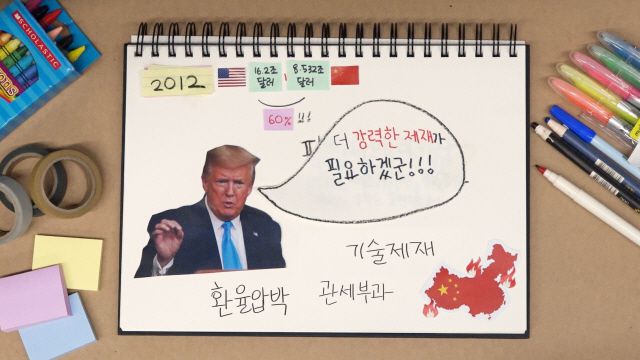 SCHOLASTIC
2012
16.2조
달러
8.532조
달러
60%
더 강력한 제재가
필요하겠군!!!
기술제재
환율압박
관세부과